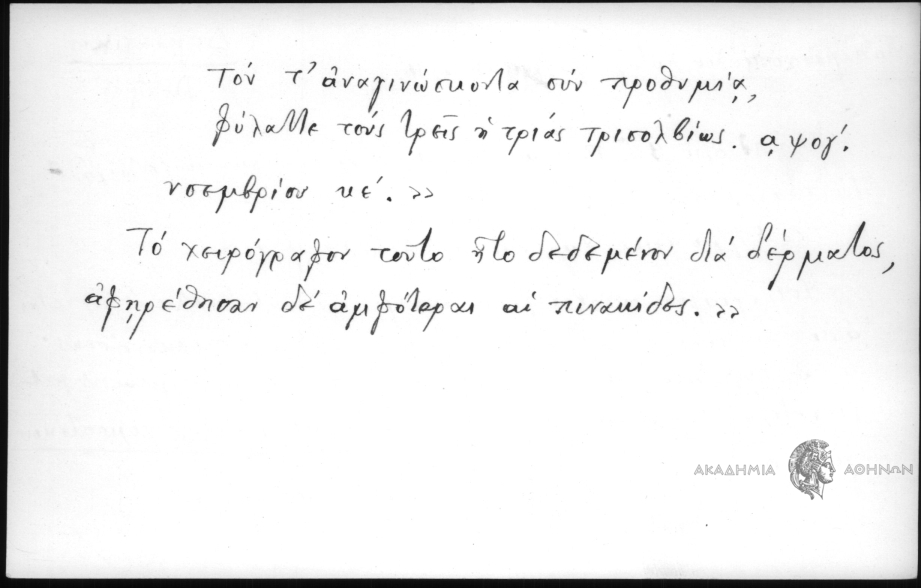 τόν τ' ἀναγινώσκοντα σύν προθυμίᾳ,
φύλαττε τούς τρεῖς ἡ τριάς τρισολβίως. ᾳψογ΄.
νοεμβρίου κε΄. »
Τό χειρόγραφον τοῦτο ἦτο δεδεμένον διά δέρματος,
ἀφῃρέθησαν δέ ἀμφότεραι αἱ πινακίδες. »
ΑΚΑΔΗΜΙΑ ΑΘΗΝΩΝ